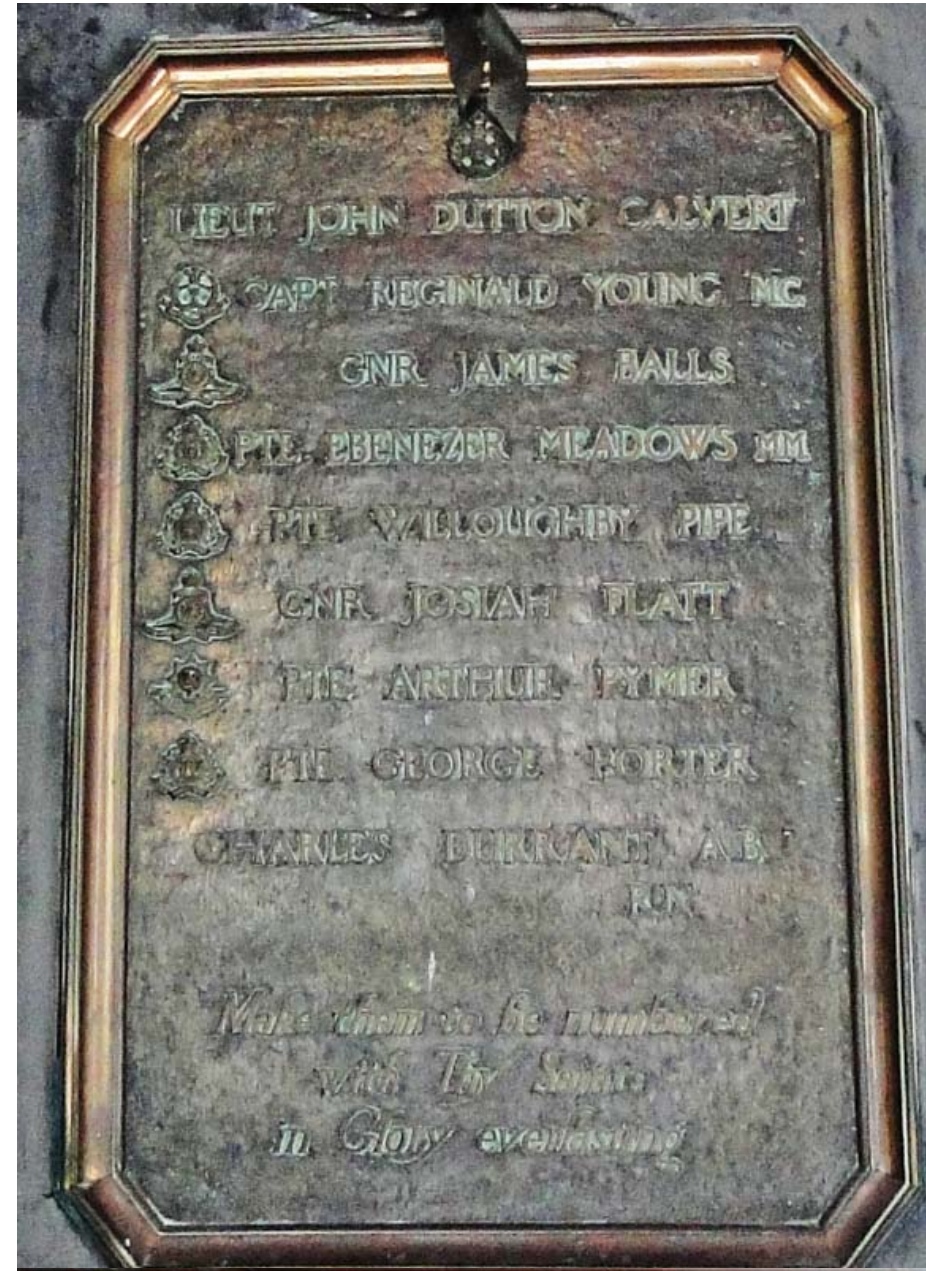 LIEUT JOHN DUTTON CALVERT
CAPT REGINALD YOUNG MC
GNR JAMES BALLS
PTE. EBENEZER MEADOWS MM
PTE WILLOUGHBY PIPE
GNR JOSIAH PLATT
PTE. ARTHUR PYMER
PTE GEORGE PORTER
CHARLES DURRANT A.B.
R.N.
Make them to be numbered
with Thy Saints
in Glory everlasting